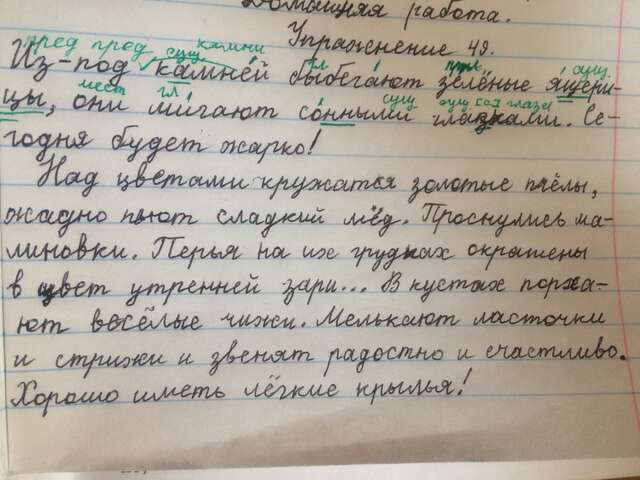 Домашняя работа.
Упражнение 49.
пред пред сущ. камни
Из-под камней выбегают зелёные ящери-
гл прил сущ.
цы, они мигают сонными глазками. Се-
мест гл сущ сущ глаза
годня будет жарко!
Над цветами кружатся золотые пчёлы,
жадно пьют сладкий мёд. Проснулись ма-
линовки. Перья на их грудках окрашены
в цвет утренней зари... В кустах порха-
ют весёлые чижи. Мелькают ласточки
и стрижи и звенят радостно и счастливо.
Хорошо иметь лёгкие крылья!